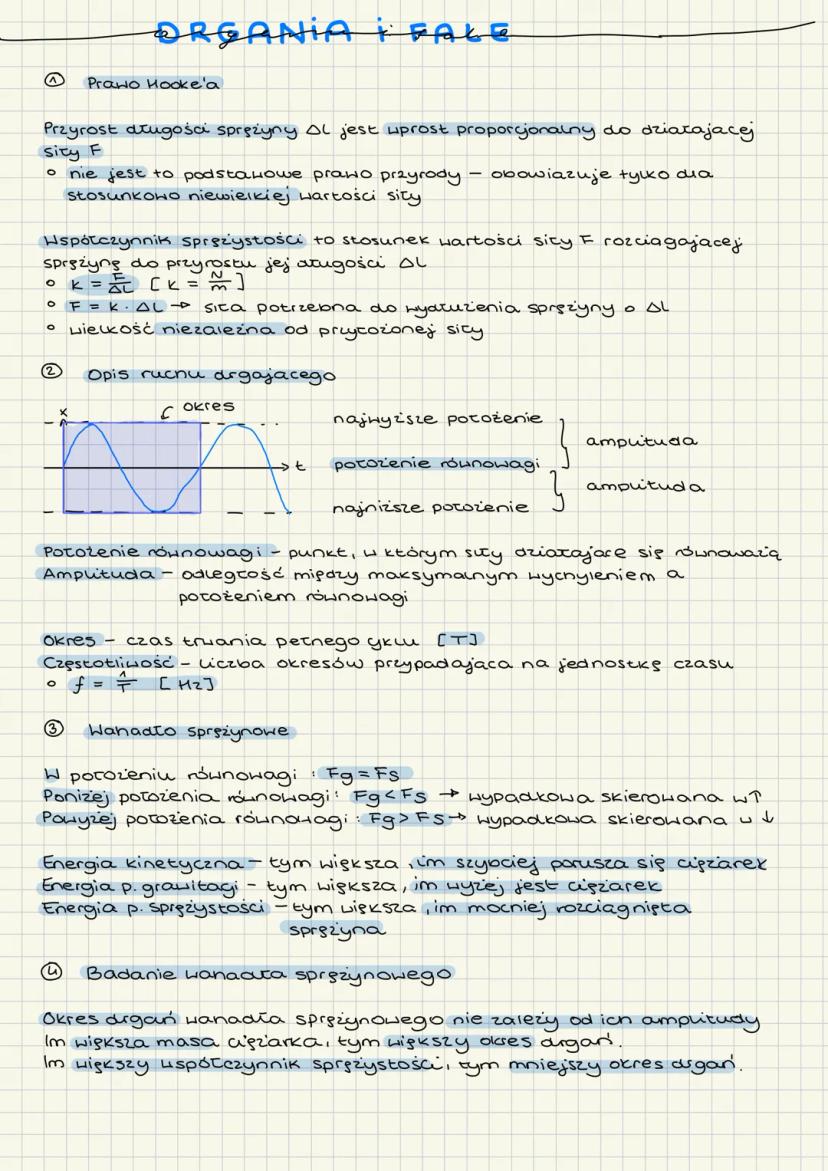 DRGANIA i FALE
drgania i fale
① Prawo Hooke'a
Przyrost długości sprężyny ΔL jest wprost proporcjonalny do działającej
siły F
° nie jest to podstawowe prawo przyrody – obowiązuje tylko dla
stosunkowo niewielkiej wartości siły
Współczynnik sprężystości to stosunek wartości siły F rozciągającej
sprężynę do przyrostu jej długości ΔL
° k = F/ΔL [k = N/m]
° F = k · ΔL → siła potrzebna do wydłużenia sprężyny o ΔL
° wielkość niezależna od przyłożonej siły
② Opis ruchu drgającego
x
okres
t
najwyższe położenie
amplituda
położenie równowagi
amplituda
najniższe położenie
Położenie równowagi – punkt, w którym siły działające się równoważą
Amplituda – odległość między maksymalnym wychyleniem a
położeniem równowagi
Okres – czas trwania pełnego cyklu [T]
Częstotliwość – liczba okresów przypadająca na jednostkę czasu
° f = 1/T [Hz]
③ Wahadło sprężynowe
W położeniu równowagi : Fg = Fs
Poniżej położenia równowagi : Fg < Fs → wypadkowa skierowana w ↑
Powyżej położenia równowagi : Fg > Fs → wypadkowa skierowana w ↓
Energia kinetyczna – tym większa, im szybciej porusza się ciężarek
Energia p. grawitacji – tym większa, im wyżej jest ciężarek
Energia p. sprężystości – tym większa, im mocniej rozciągnięta
sprężyna
④ Badanie wahadła sprężynowego
Okres drgań wahadła sprężynowego nie zależy od ich amplitudy
Im większa masa ciężarka, tym większy okres drgań.
Im większy współczynnik sprężystości, tym mniejszy okres drgań.